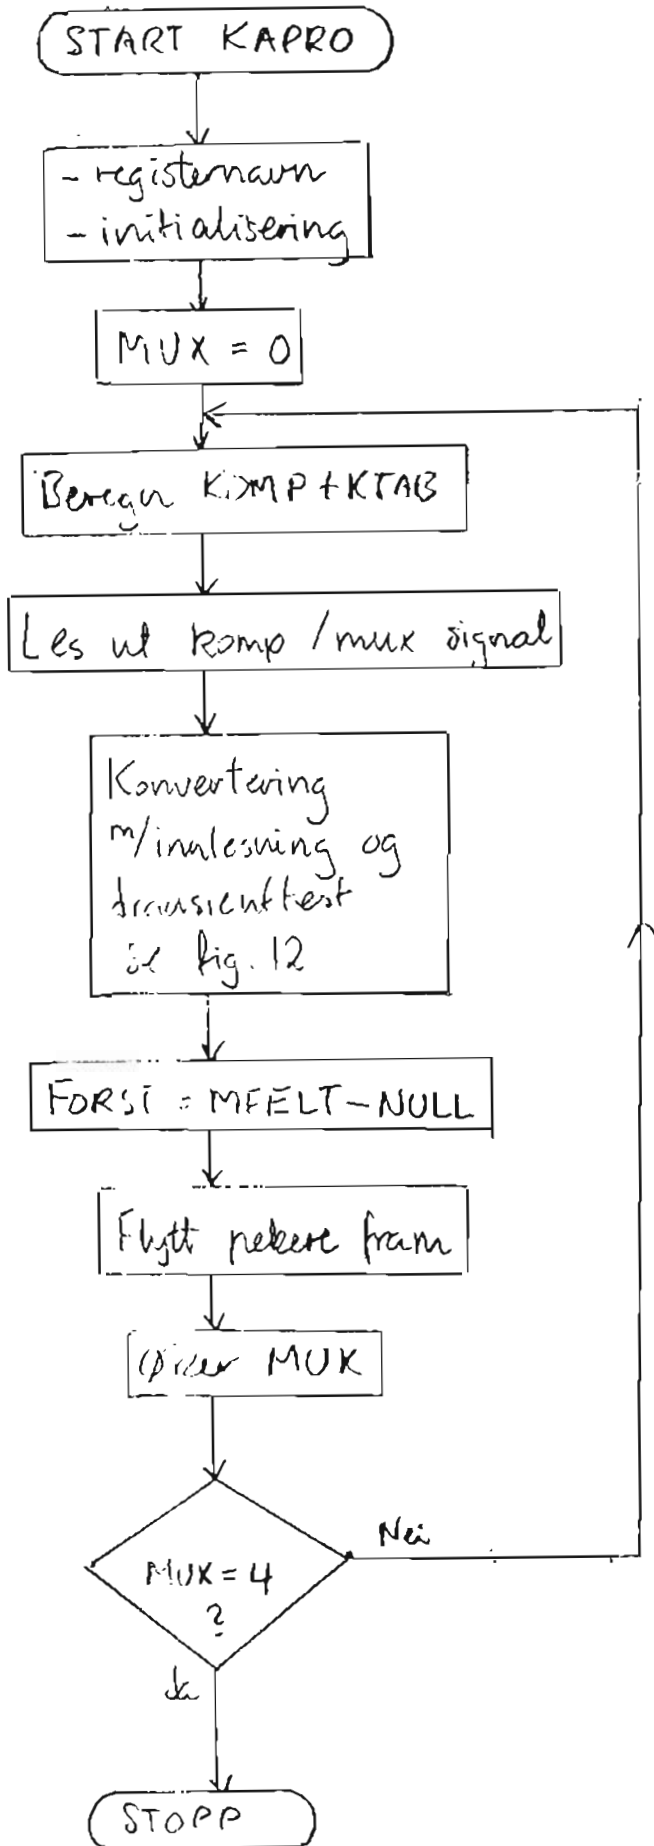 START KAPRO
- registernavn
- initialisering
MUX = 0
Beregn KOMP + KTAB
Les ut komp / mux signal
Konvertering
m/innlesning og
transienttest
se fig. 12
FORST = MFELT - NULL
Flytt pekere fram
MUX
Nei
MUX = 4
?
Ja
STOPP